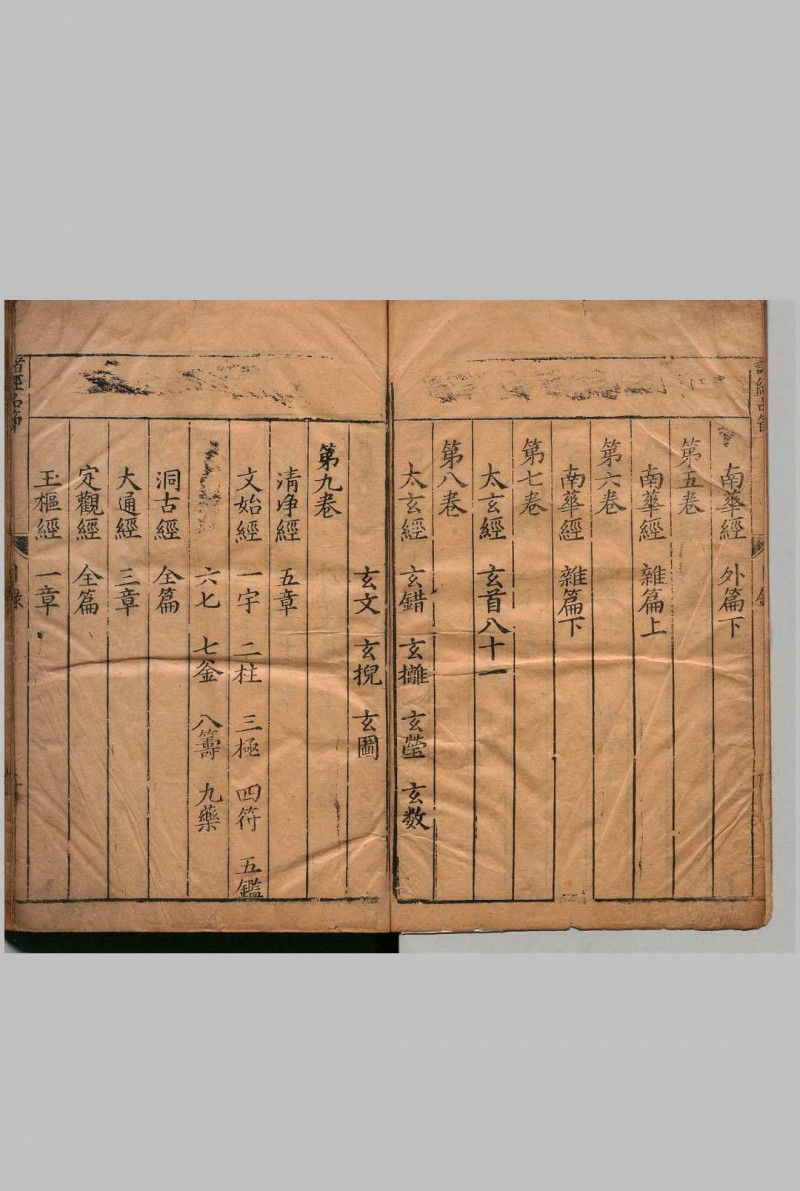 南華經 外篇下
第五卷
南華經 雜篇上
第六卷
南華經 雜篇下
第七卷
太玄經 玄首八十一
第八卷
太玄經 玄錯 玄攡 玄瑩 玄数
玄文 玄掜 玄圖
第九卷
清净經 五章
文始經 一宇 二柱 三極 四符 五鑑
六七 七釜 八籌 九藥
洞古經 全篇
大通經 三章
定觀經 全篇
玉樞經 一章
諸經品節
目録